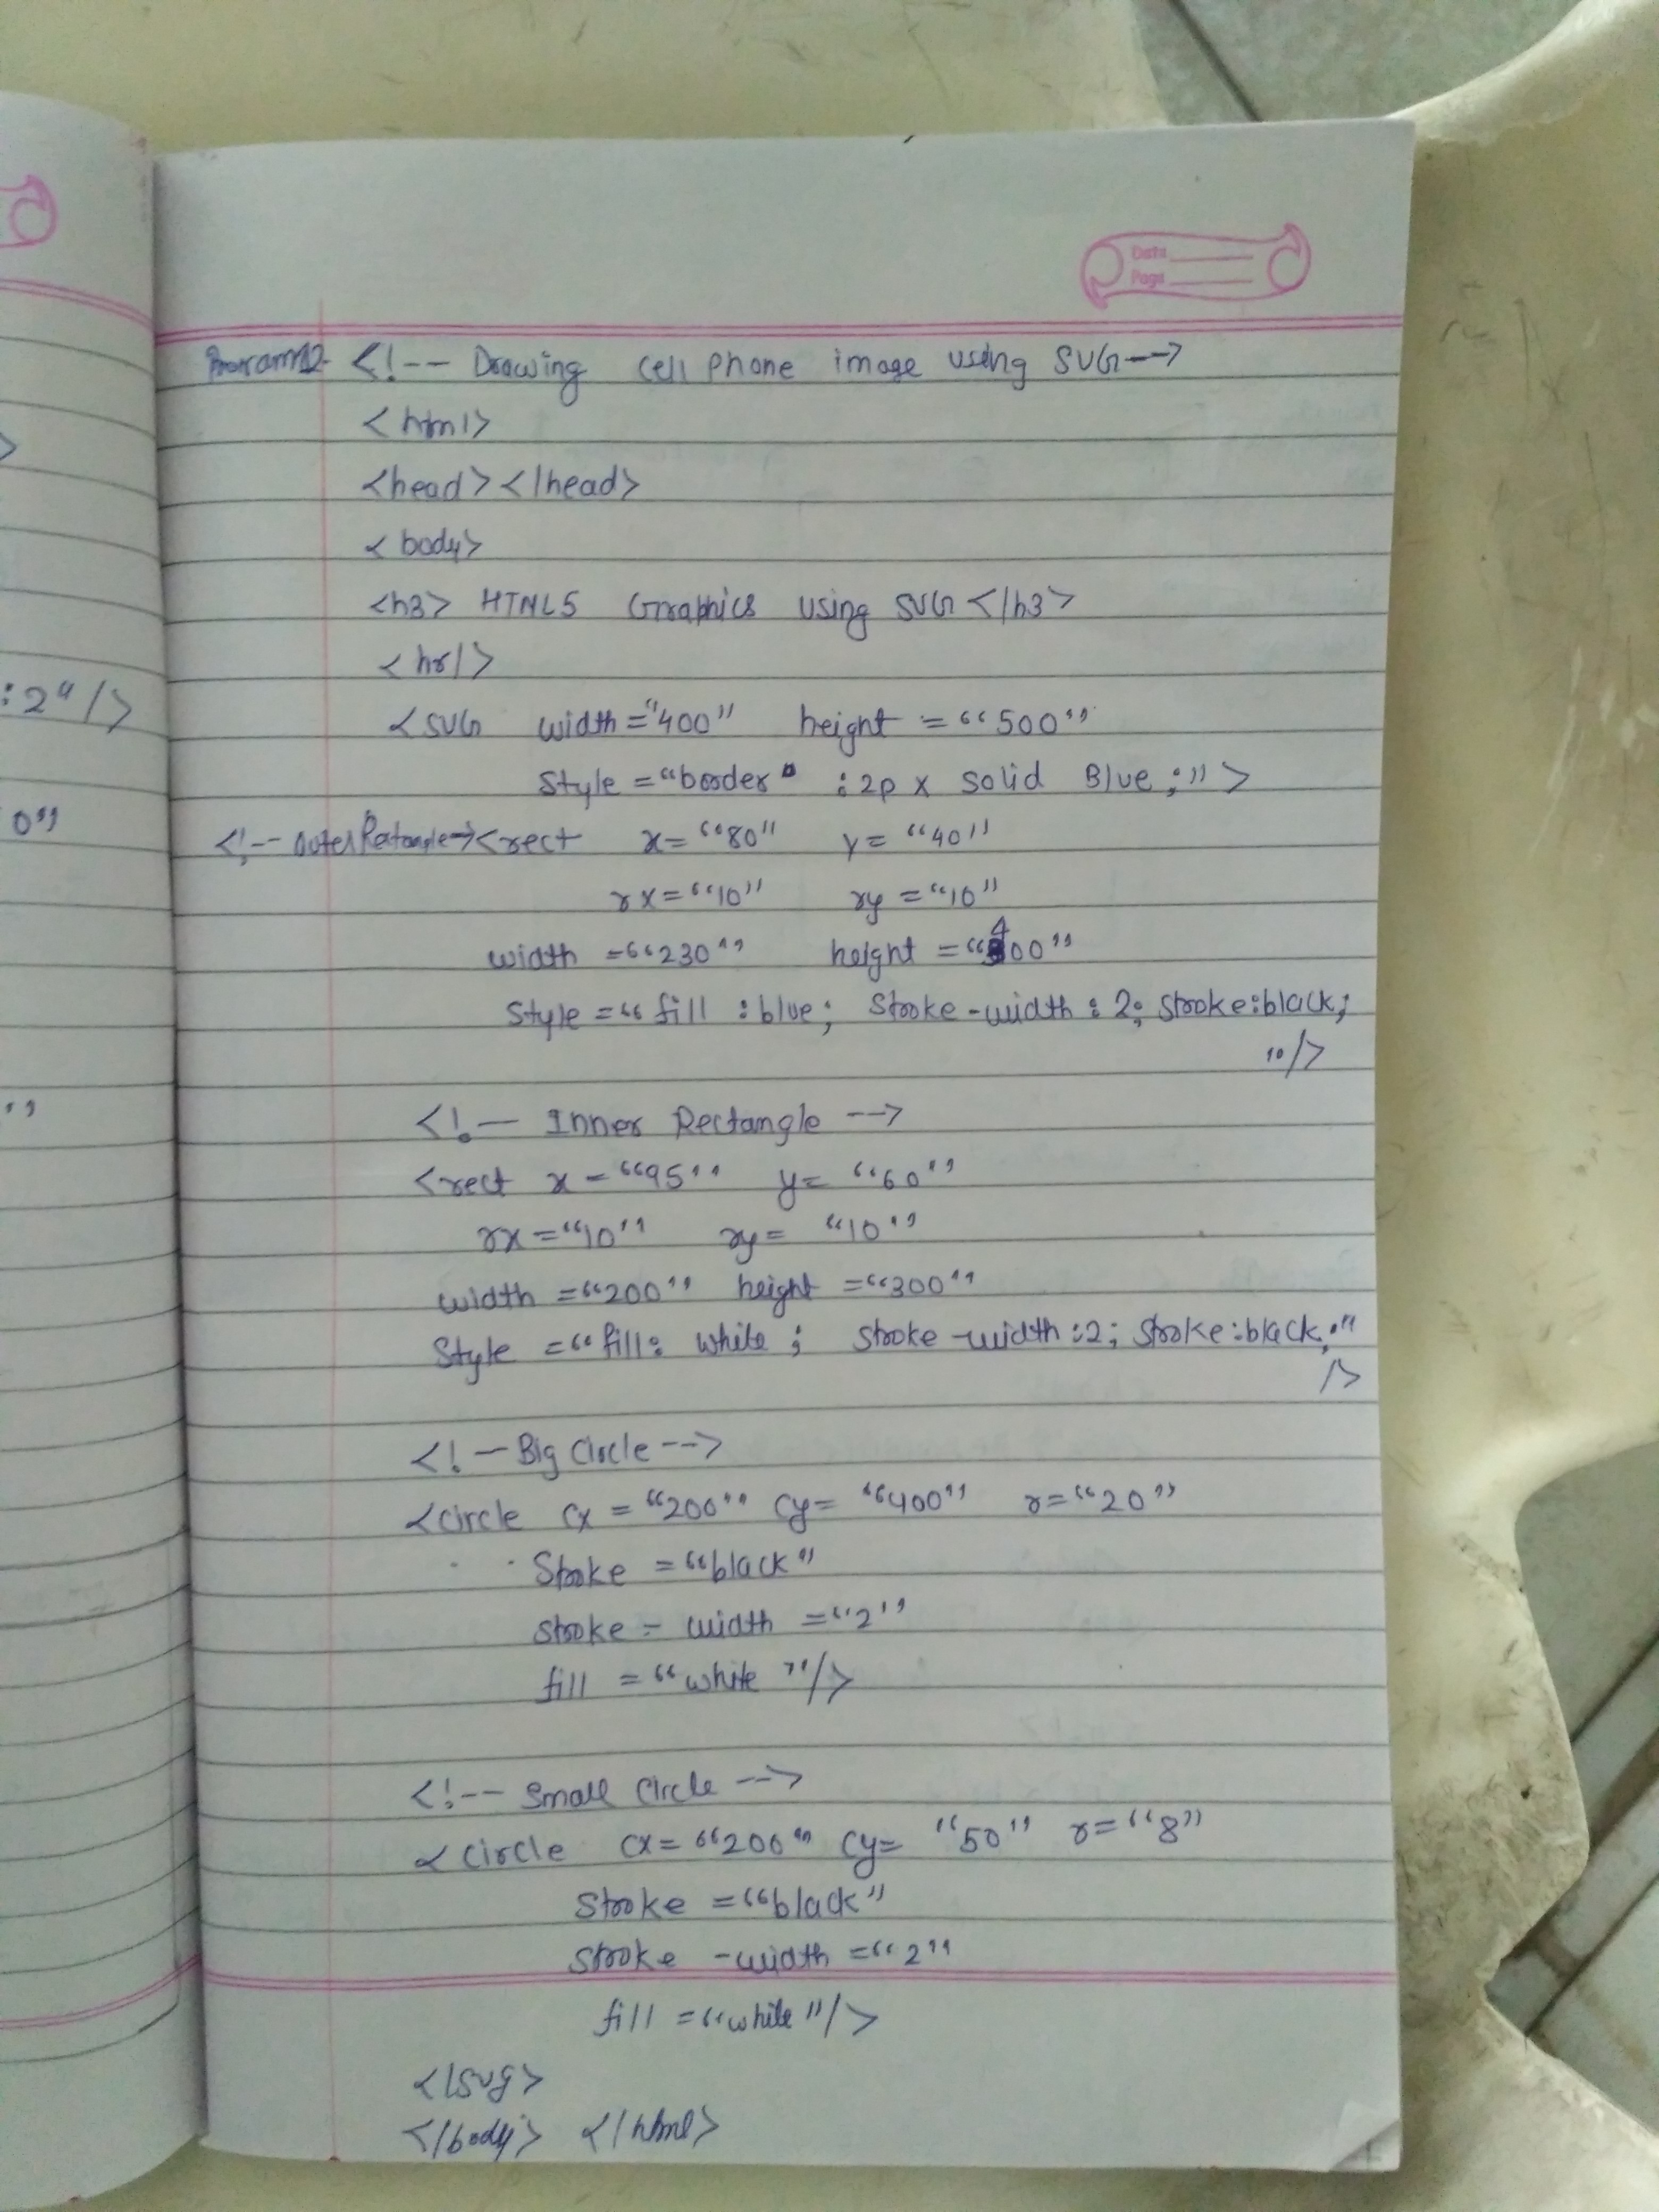 Date
Page
Program12- <!-- Drawing cell phone image using SVG-->
<html>
<head></head>
<body>
<h3> HTML5 Graphics using SVG</h3>
<hr/>
:2"/>
<SVG width="400" height="500"
Style="border :2px solid Blue;">
0"
<!-- Outer Rectangle--><rect x="80" y="40"
rx="10" ry="10"
width="230" height="400"
Style="fill:blue; Stroke-width:2; stroke:black;
"/>
"
<!-- Inner Rectangle -->
<rect x="95" y="60"
rx="10" ry="10"
width="200" height="300"
Style="fill: white; stroke-width:2; stroke:black;"
/>
<!-- Big Circle -->
<circle cx="200" cy="400" r="20"
Stroke="black"
stroke-width="2"
fill="white"/>
<!-- Small Circle -->
<circle cx="200" cy="50" r="8"
Stroke="black"
stroke-width="2"
fill="white"/>
</svg>
</body> </html>